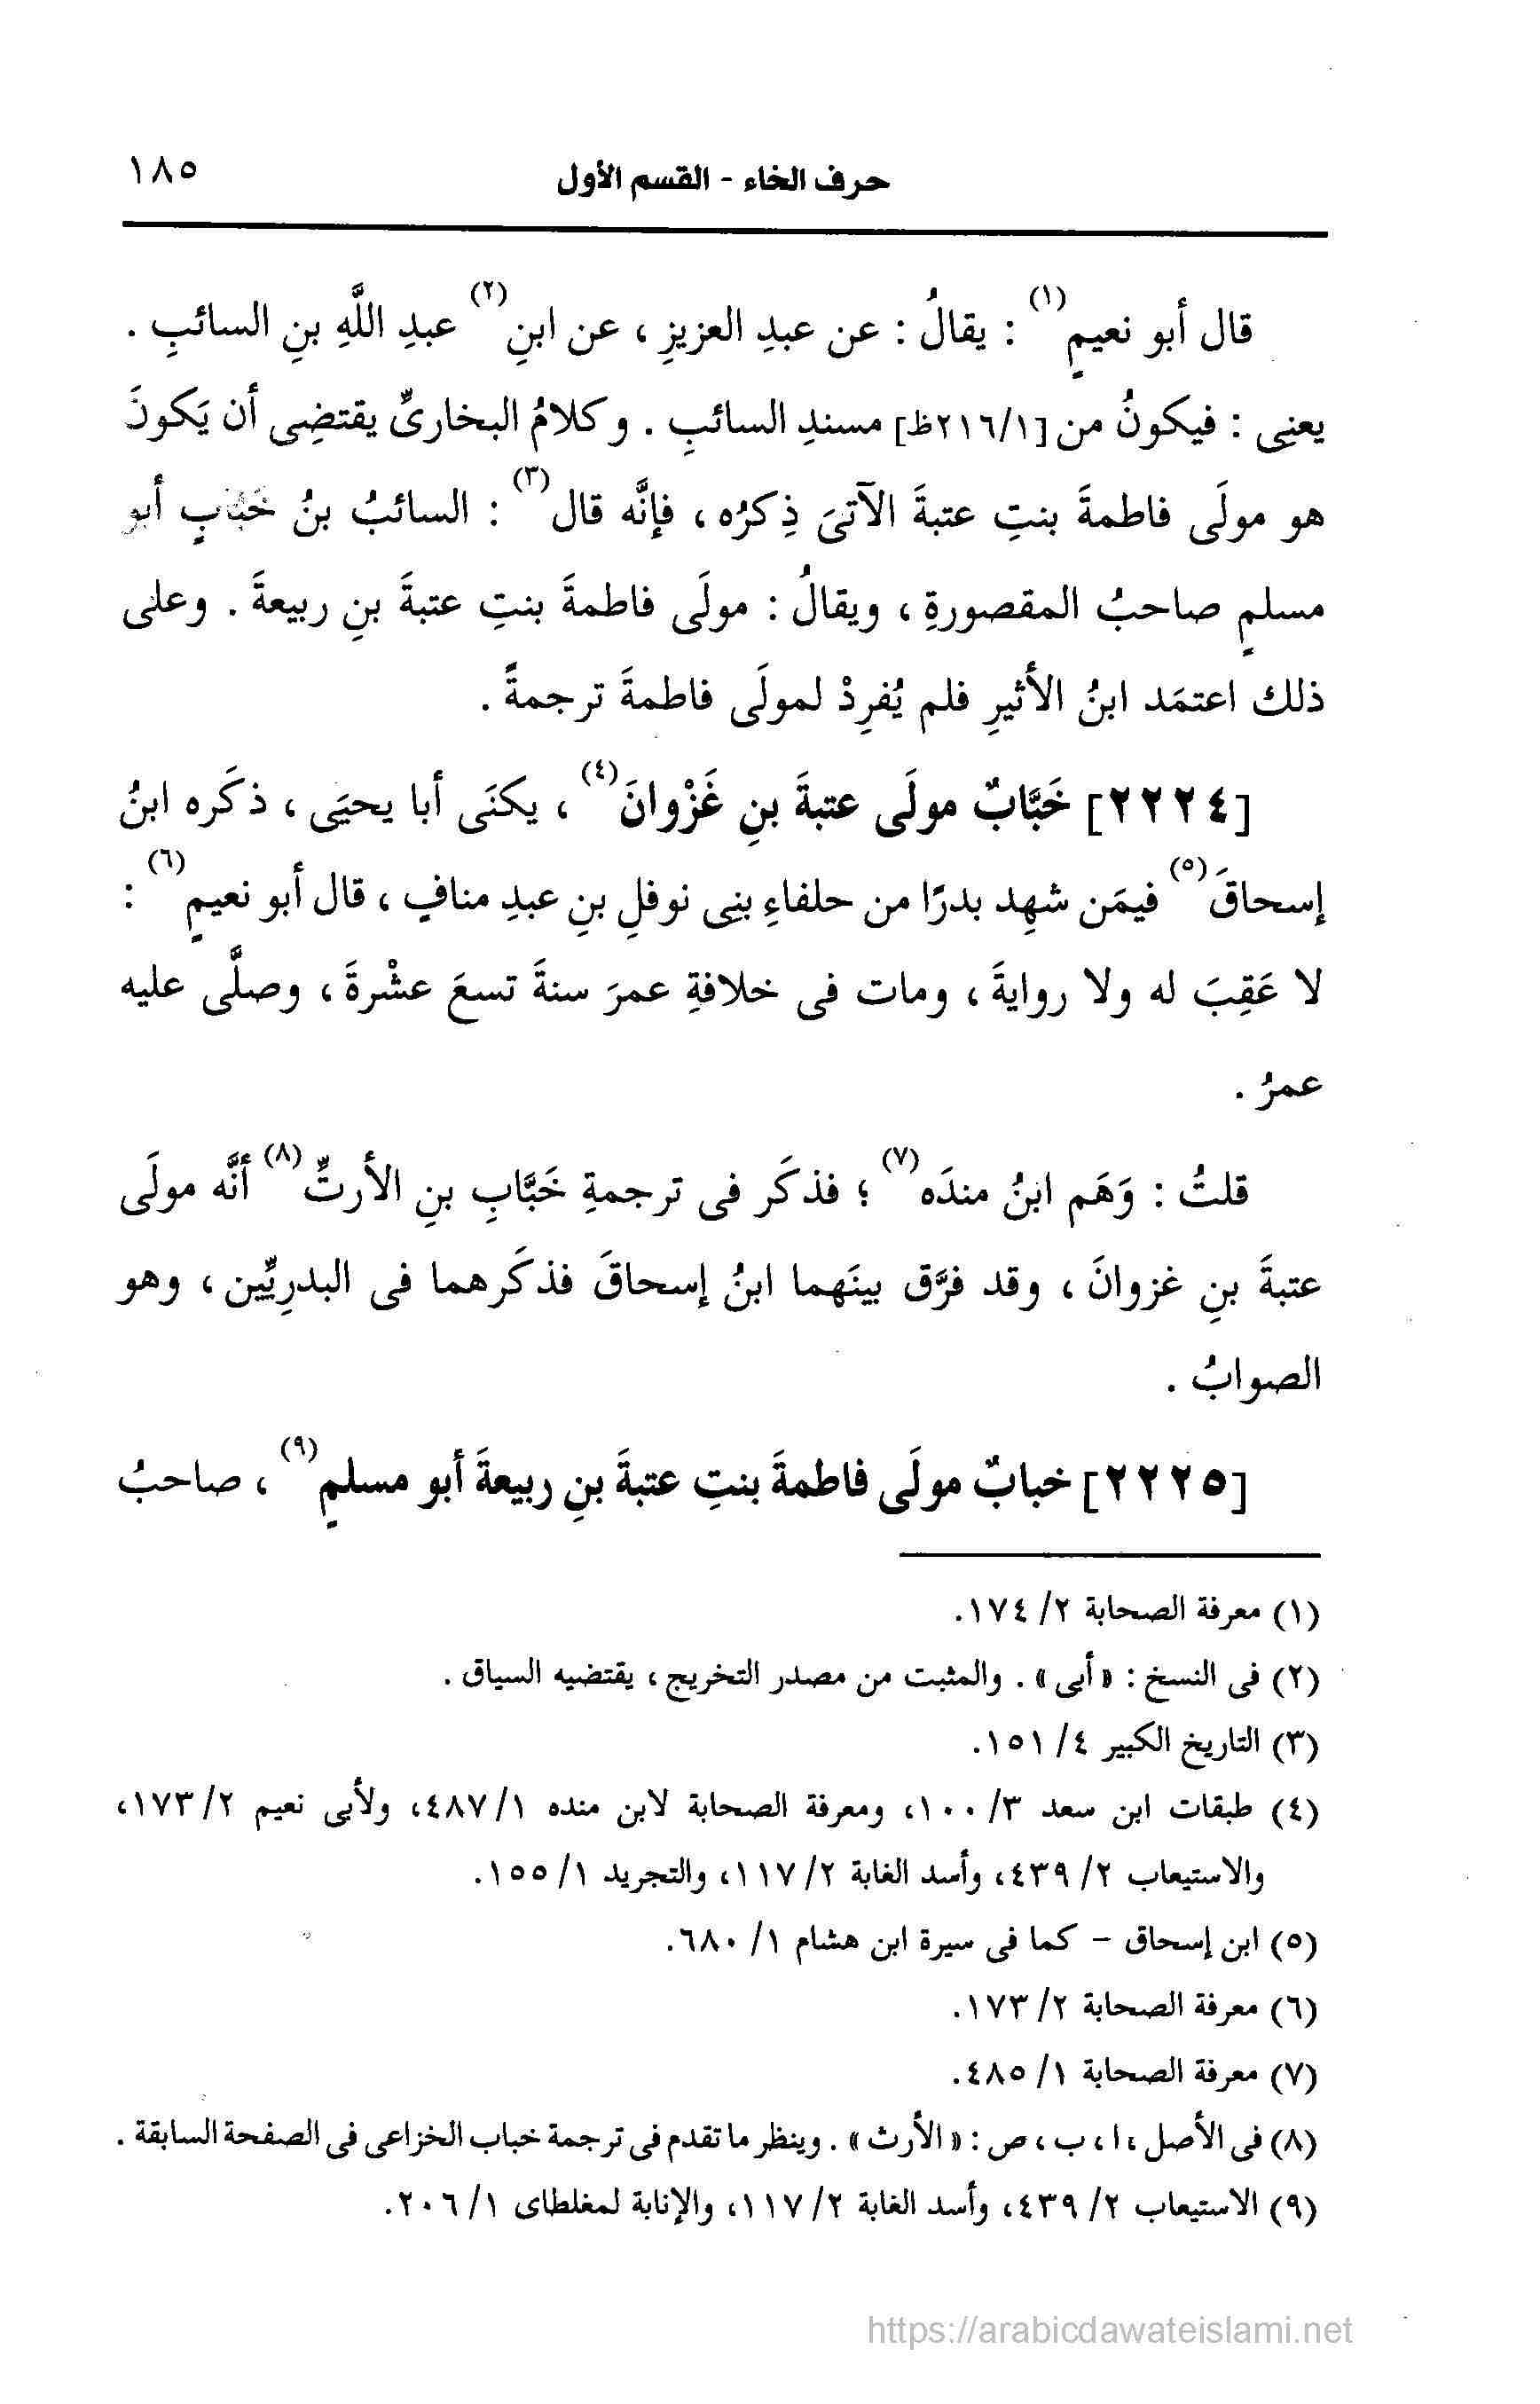 حرف الخاء - القسم الأول
١٨٥
قال أبو نعيمٍ(١) : يقالُ : عن عبدِ العزيزِ ، عن ابنِ(٢) عبدِ اللَّهِ بنِ السائبِ .
يعنِى : فيكونُ من [٢١٦/١ظ] مسندِ السائبِ . وكلامُ البخارىِّ يقتضِى أن يَكونَ
هو مولَى فاطمةَ بنتِ عتبةَ الآتىَ ذِكرُه ، فإنَّه قال(٣) : السائبُ بنُ خَبَّابٍ أبو
مسلمٍ صاحبُ المقصورةِ ، ويقالُ : مولَى فاطمةَ بنتِ عتبةَ بنِ ربيعةَ . وعلى
ذلك اعتمَد ابنُ الأثيرِ فلم يُفرِدْ لمولَى فاطمةَ ترجمةً .
[٢٢٢٤] خَبَّابٌ مولَى عتبةَ بنِ غَزْوانَ(٤) ، يكنَى أبا يحيَى ، ذكَره ابنُ
إسحاقَ(٥) فيمَن شهِد بدرًا من حلفاءِ بنِى نوفلِ بنِ عبدِ منافٍ ، قال أبو نعيمٍ(٦) :
لا عَقِبَ له ولا روايةَ ، ومات فى خلافةِ عمرَ سنةَ تسعَ عشْرةَ ، وصلَّى عليه
عمرُ .
قلتُ : وَهَم ابنُ مندَه(٧) ؛ فذكَر فى ترجمةِ خَبَّابِ بنِ الأرتِّ(٨) أنَّه مولَى
عتبةَ بنِ غزوانَ ، وقد فرَّق بينَهما ابنُ إسحاقَ فذكَرهما فى البدرِيِّين ، وهو
الصوابُ .
[٢٢٢٥] خبابٌ مولَى فاطمةَ بنتِ عتبةَ بنِ ربيعةَ أبو مسلمٍ(٩) ، صاحبُ
(١) معرفة الصحابة ٢/ ١٧٤.
(٢) فى النسخ : « أبى » . والمثبت من مصدر التخريج ، يقتضيه السياق .
(٣) التاريخ الكبير ٤/ ١٥١.
(٤) طبقات ابن سعد ٣/ ١٠٠، ومعرفة الصحابة لابن منده ١/ ٤٨٧، ولأبى نعيم ٢/ ١٧٣،
والاستيعاب ٢/ ٤٣٩، وأسد الغابة ٢/ ١١٧، والتجريد ١/ ١٥٥.
(٥) ابن إسحاق - كما فى سيرة ابن هشام ١/ ٦٨٠.
(٦) معرفة الصحابة ٢/ ١٧٣.
(٧) معرفة الصحابة ١/ ٤٨٥.
(٨) فى الأصل ، ا ، ب ، ص : « الأرث » . وينظر ما تقدم فى ترجمة خباب الخزاعى فى الصفحة السابقة .
(٩) الاستيعاب ٢/ ٤٣٩، وأسد الغابة ٢/ ١١٧، والإنابة لمغلطاى ١/ ٢٠٦.
https://arabicdawateislami.net